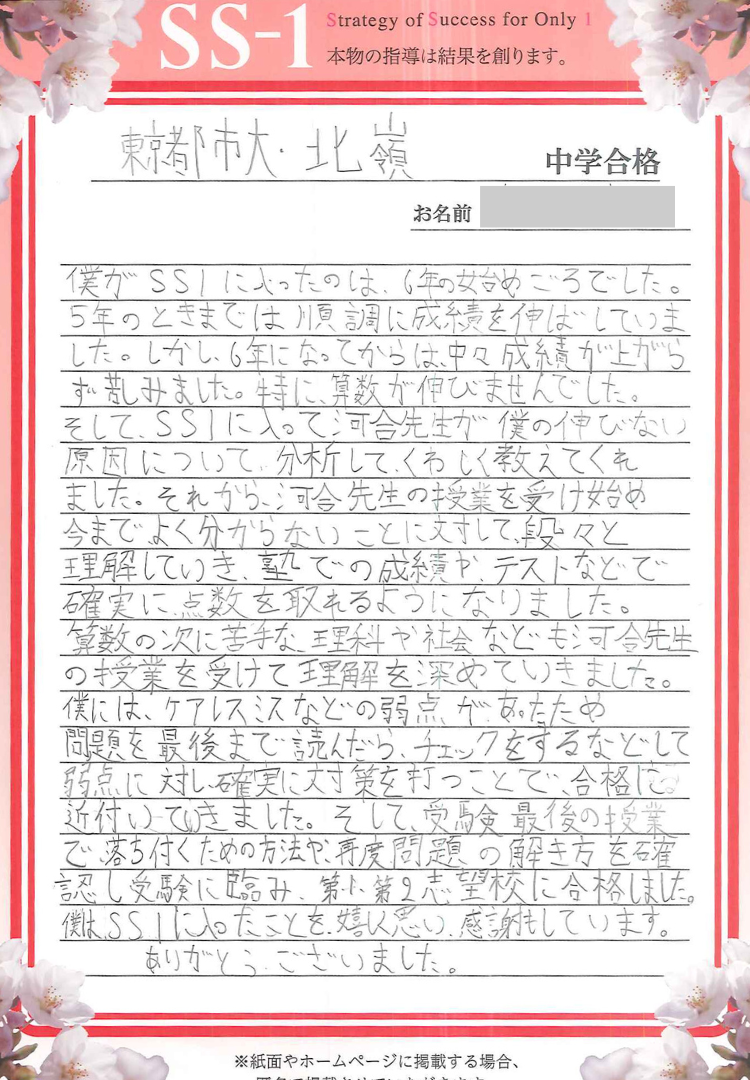 SS-1
Strategy of Success for Only 1
本物の指導は結果を創ります。
東京都市大・北嶺
中学合格
お名前
僕がSS1に入ったのは、6年の始めごろでした。
5年のときまでは順調に成績を伸ばしていま
した。しかし、6年になってからは、中々成績が上がら
ず苦しみました。特に、算数が伸びませんでした。
そして、SS1に入って河合先生が僕の伸びない
原因について、分析して、くわしく教えてくれ
ました。それから、河合先生の授業を受け始め
今までよく分からないことに対して、段々と
理解していき、塾での成績や、テストなどで
確実に、点数を取れるようになりました。
算数の次に苦手な、理科や社会なども河合先生
の授業を受けて理解を深めていきました。
僕には、ケアレスミスなどの弱点があったため
問題を最後まで読んだら、チェックをするなどして
弱点に対し、確実に対策を打つことで、合格に
近付いていきました。そして、受験最後の授業
で、落ち付くための方法や、再度問題の解き方を確
認し受験に臨み、第1、第2志望校に合格しました。
僕は、SS1に入ったことを、嬉しく思い、感謝もしています。
ありがとうございました。
※紙面やホームページに掲載する場合、